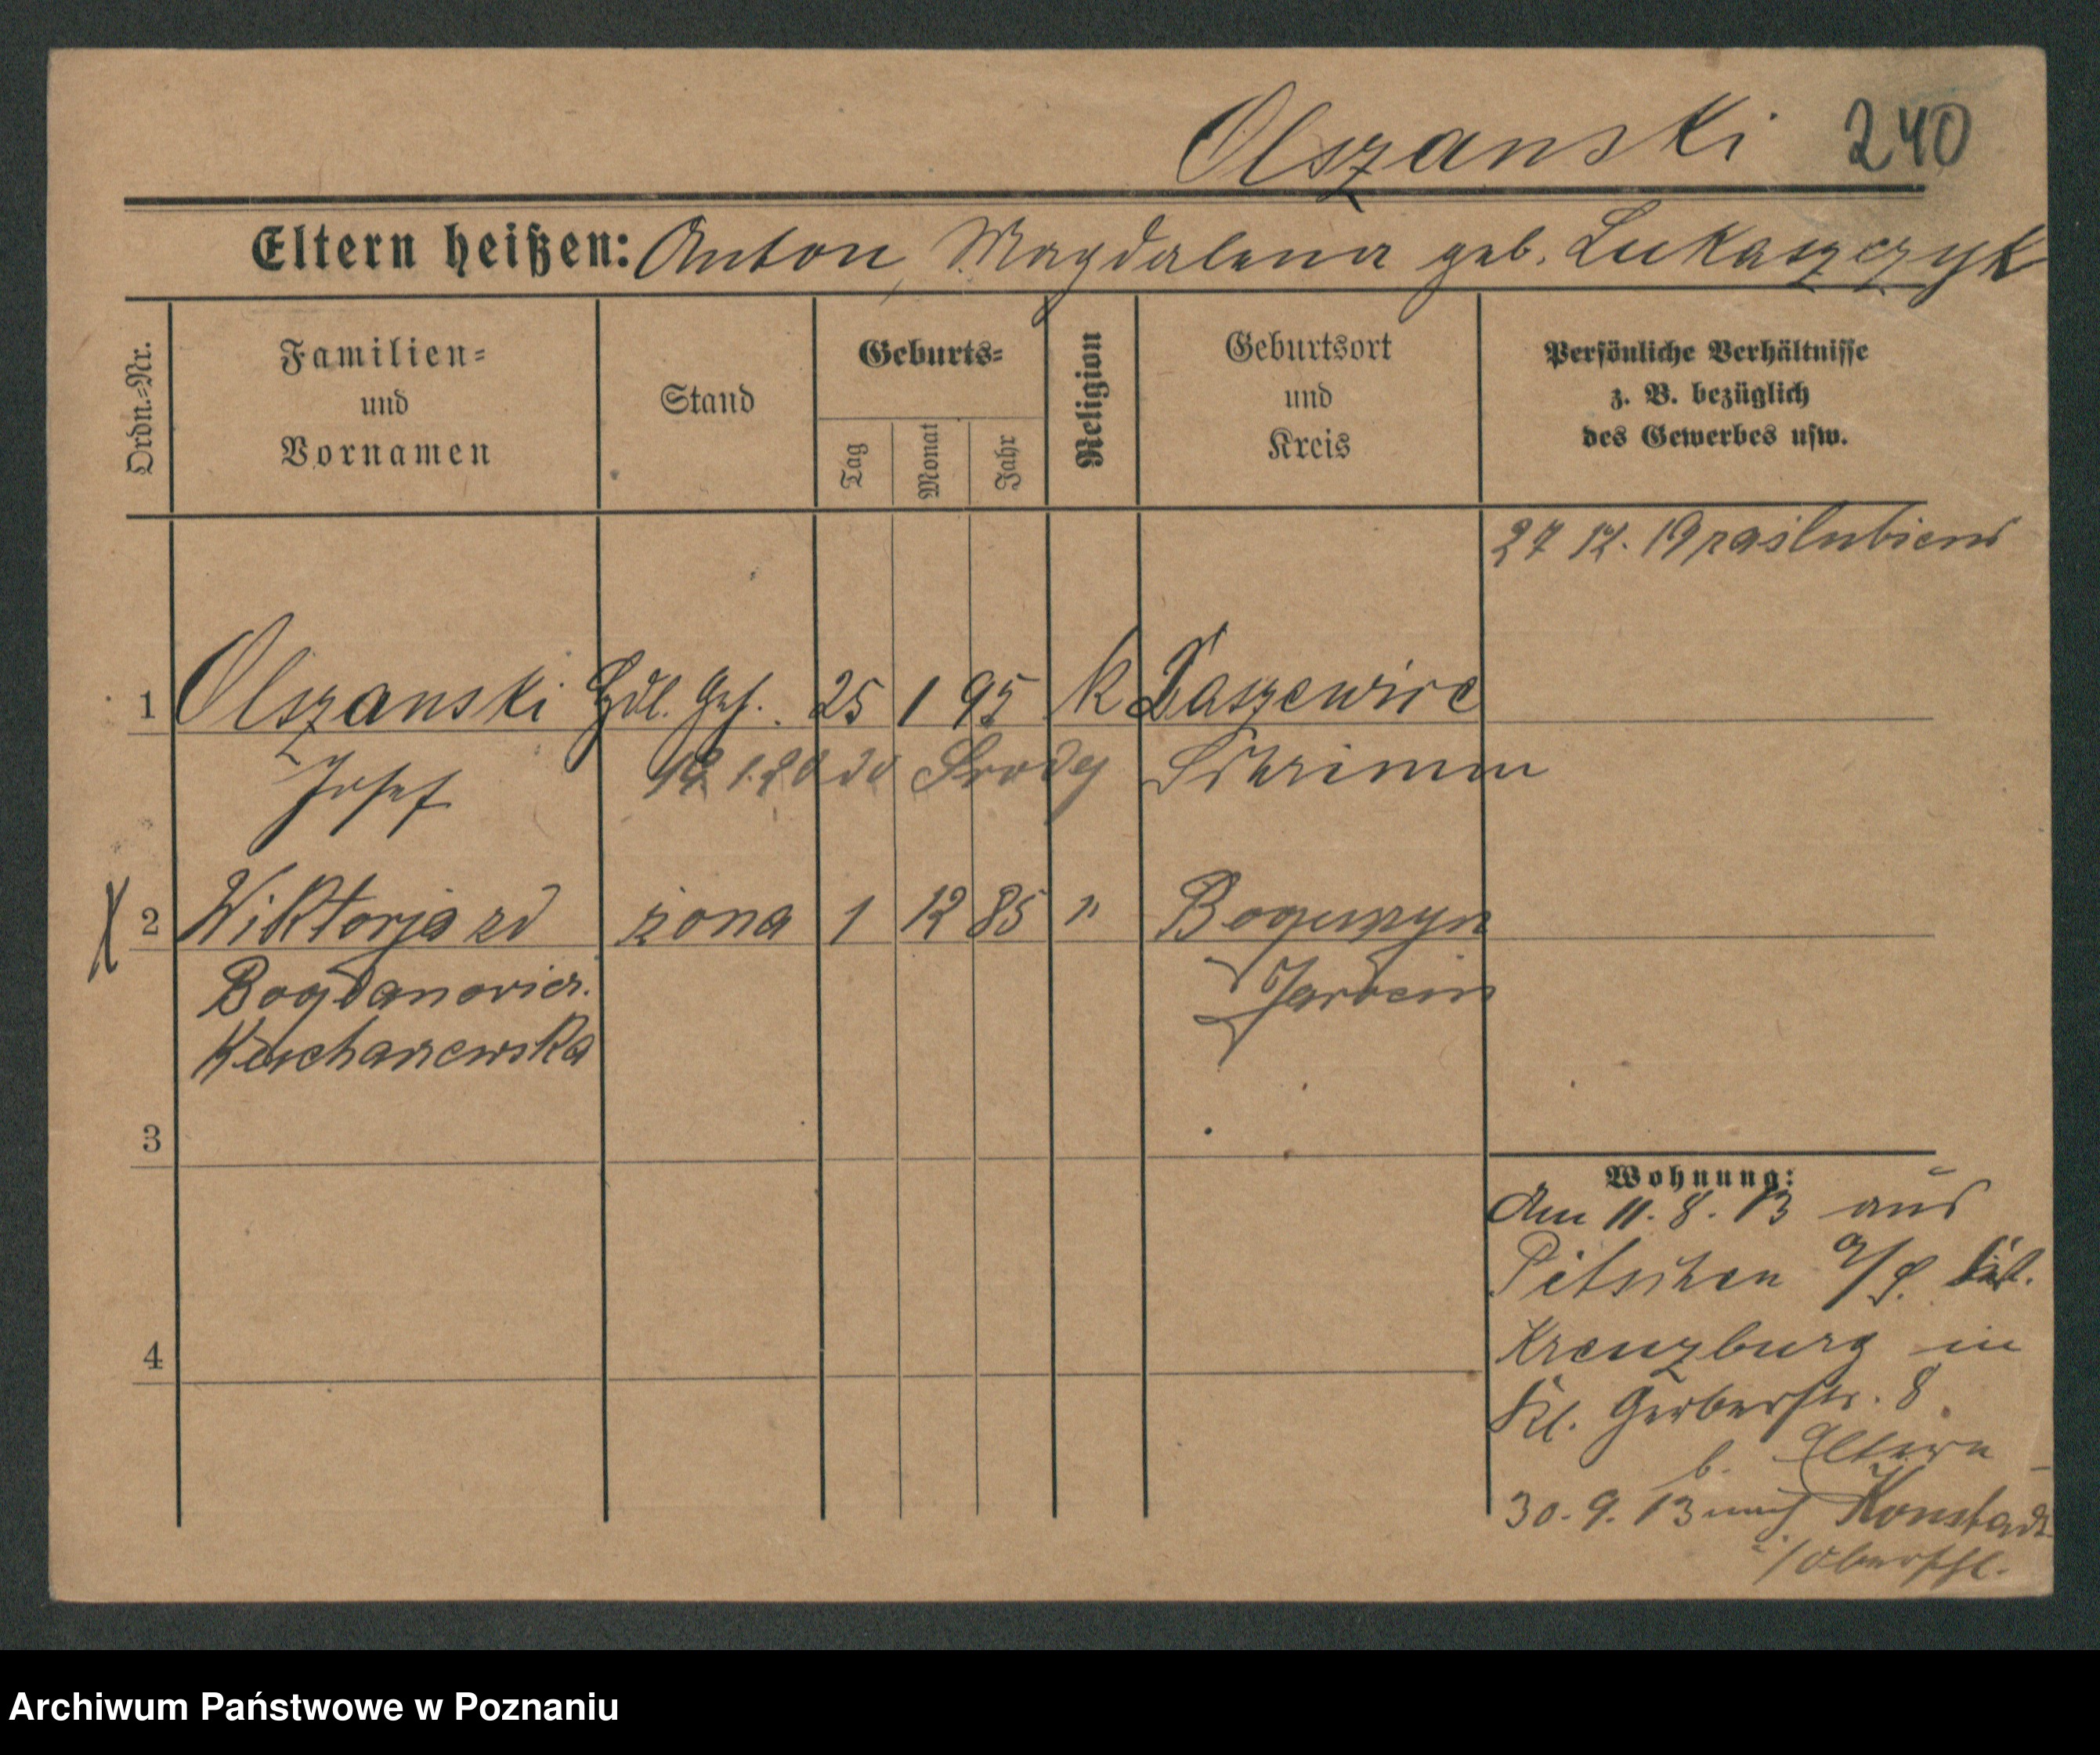 Olszanski 240
Eltern heißen: Anton, Magdalena geb. Lukaszczyk
Ordn.-Nr.
Familien-
und
Vornamen
Stand
Geburts-
Tag
Monat
Jahr
Religion
Geburtsort
und
Kreis
Persönliche Verhältnisse
z. B. bezüglich
des Gewerbes usw.
27 12. 19 zaślubieni
1 Olszanski Hdl. Geh. 25 1 95 k Daszewice
Josef 12. 1. 20 do Srody Schrimm
2 Wiktorja zd żona 1 12 85 " Boguszyn
Bogdanowicz Jarocin
3
Wohnung:
Am 11. 8. 13 aus
Pitschen O/S.
Kreuzburg in
4
Kl. Gerberstr. 8
b. Eltern
30. 9. 13 nach Konstadt
i/Oberschl.
Archiwum Państwowe w Poznaniu